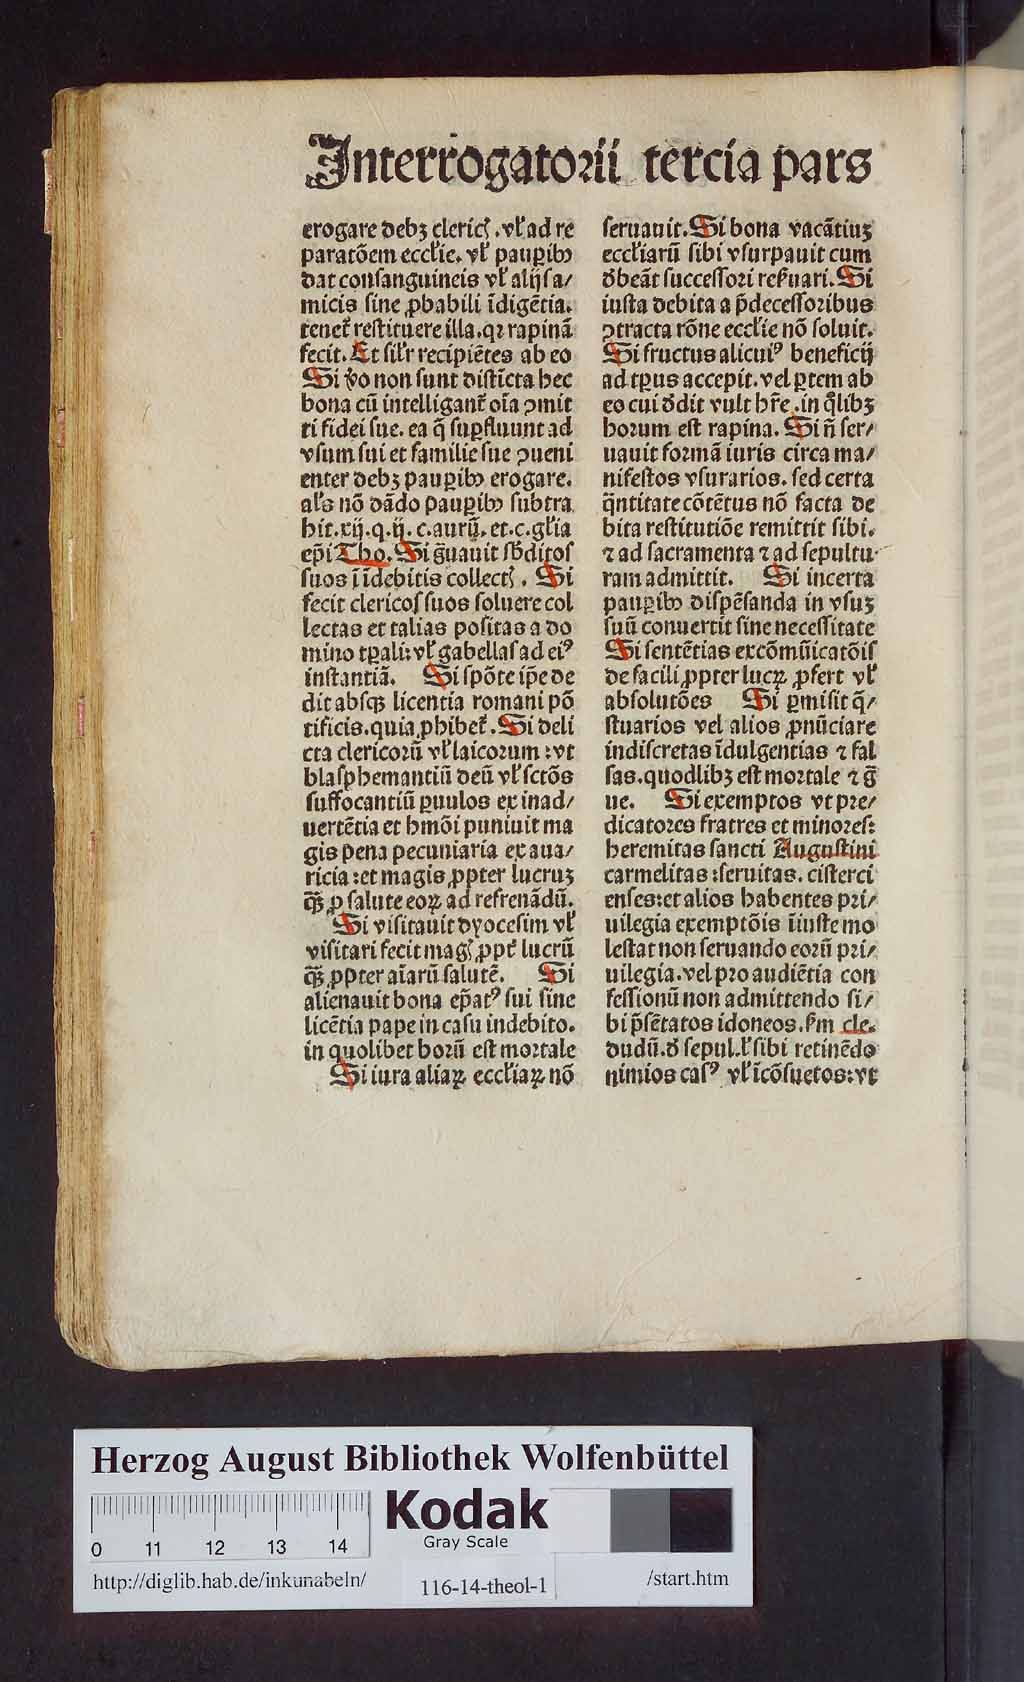 Interrogatorii tercia pars
erogare debꝫ cleric̄ . vl̕ ad re
paratōem eccl̕ie. vl̕ pauꝑibꝰ
dat consanguineis vl̕ alijs a/
micis sine ꝓbabili īdigētia.
tenet᷑ restituere illa. qꝛ rapinā
fecit. Et sil̕r recipiētes ab eo
Si v̊o non sunt distīcta hec
bona cū intelligant᷑ oīa ꝯmit
ti fidei sue. ea q̄ suꝑfluunt ad
vsum sui et familie sue ꝯueni
enter debꝫ pauꝑibꝰ erogare.
al̕s nō dādo pauꝑibꝰ subtra
hit. xij. q. ij. c. aurū. et. c. gl̕ia
ep̄i Tho. Si g̃uauit sb̕ditos
suos ī īdebitis collect̄ . Si
fecit clericos suos soluere col
lectas et talias positas a do
mino tꝑali: vl̕ gabellas ad eiꝰ
instantiā. Si spōte ip̄e de
dit absqꝫ licentia romani pō
tificis. quia ꝓhibet᷑. Si deli
cta clericorū vl̕ laicorum: vt
blasphemantiū deū vl̕ sctōs
suffocantiū ꝑuulos ex inad/
uertētia et hmōi puniuit ma
gis pena pecuniaria ex aua/
ricia: et magis ꝓpter lucruꝫ
qꝫ̄ ꝓ salute eoꝝ ad refrenādū.
Si visitauit dyocesim vl̕
visitari fecit maḡ ꝓpt᷑ lucrū
qꝫ̄ ꝓpter aīarū salutē. Si
alienauit bona ep̄atꝰ sui sine
licētia pape in casu indebito.
in quolibet horū est mortale
Si iura aliaꝝ eccl̕iaꝝ nō
seruauit. Si bona vacātiuꝫ
eccl̕iarū sibi vsurpauit cum
d̕beāt successori res̕uari. Si
iusta debita a p̄decessoribus
ꝯtracta rōne eccl̕ie nō soluit.
Si fructus alicuiꝰ beneficij
ad tp̄us accepit. vel ꝑtem ab
eo cui d̕dit vult hr̄e . in q̄libꝫ
horum est rapina. Si n̄ ser/
uauit formā iuris circa ma/
nifestos vsurarios. sed certa
q̄ntitate cōtētus nō facta de
bita restitutiōe remittit sibi.
⁊ ad sacramenta ⁊ ad sepultu
ram admittit. Si incerta
pauꝑibꝰ dispēsanda in vsuꝫ
suū conuertit sine necessitate
Si sentētias excōmūicatōis
de facili ꝓpter lucꝝ ꝓfert vl̕
absolutōes Si ꝑmisit q̄/
stuarios vel alios ꝓnūciare
indiscretas īdulgentias ⁊ fal
sas. quodlibꝫ est mortale ⁊ g̃
ue. Si exemptos vt pre/
dicatores fratres et minores:
heremitas sancti Augustini
carmelitas: seruitas. cisterci
enses: et alios habentes pri/
uilegia exemptōis īiuste mo
lestat non seruando eorū pri/
uilegia. vel pro audiētia con
fessionū non admittendo si/
bi p̄sētatos idoneos. s̕m cle.
dudū. d̕ sepul. l̕ sibi retinēdo
nimios casꝰ vl̕ īcōsuetos: vt
Herzog August Bibliothek Wolfenbüttel
Kodak
Gray Scale
0 11 12 13 14
http://diglib.hab.de/inkunabeln/
116-14-theol-1
/start.htm